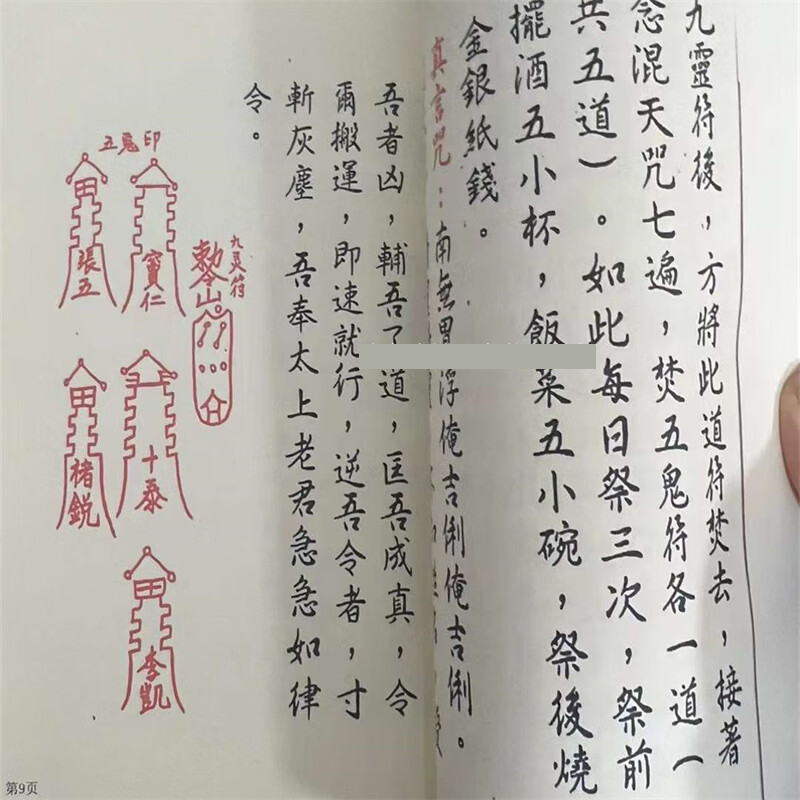 九靈符後，方將此道符焚去，接著
念混天咒七遍，焚五鬼符各一道（
共五道）。如此每日祭三次，祭前
擺酒五小杯，飯菜五小碗，祭後燒
金銀紙錢。
真言咒：南無胃浮俺吉俐俺吉俐。
吾者凶，輔吾了道，匡吾成真，令
爾搬運，即速就行，逆吾令者，寸
斬灰塵，吾奉太上老君急急如律
令。
九灵符
敕令
五鬼印
竇仁
張五
十泰
褚銳
李凱
第9页